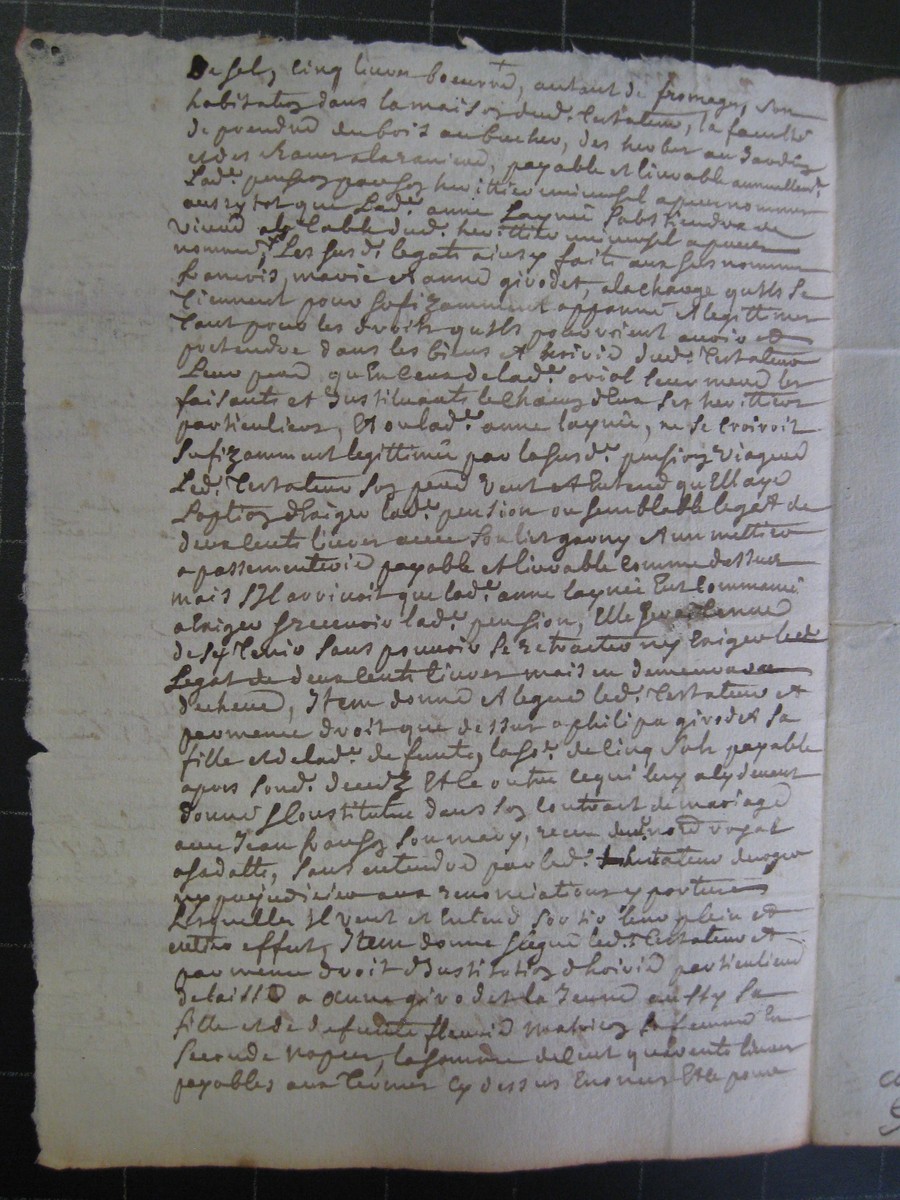 De sel, cinq livres beurre, autant de fromage, son
habitation dans la maison dud. testateur, la faculté
de prendre du bois au bucher, des herbes au Jardin
et des raves a la raviere, payable et livrable annuellemt.
Lad.e pension par son herittier universel apres nommé
aussy tot que Lad.e anne Laynée s'abstiendra de
vivre a la table dud. herittier universel apres
nommé, Les susd. legats ainsy faits aux susnommes
francois, marie et anne givodet, a la charge quils se
tiennent pour sufizamment appanné et legittimes
tant pour les droits quils pourroient avoir et
pretendre dans les biens et hoirie dud. testateur
Leur pere, qu'en ceux de lad.e oriol leur mere les
faisants et Instituants le chacun d'eux ses herittiers
particuliers, Et ou lad.e anne laynée, ne se croiroit
sufizamment legittimée par la susd.e pension viagere
Led. testateur son pere veut et Entend qu'Ell aye
l'option d'Exiger lad.e pension ou semblable legat de
deux cents livres avec son lict garny et un mettier
a passementerie payable et livrable comme dessus
mais s'Il arrivoit que lad.e anne laynée Eut commencé
a Exiger et recevoir lad.e pension, Elle sera tenue
de s'y tenir sans pouvoir se retracter ny Exiger led.
Legat de deux cents livres mais en demeurera
decheue, Item donne et legue led. testateur et
par meme droit que dessus a philipa givodet sa
fille et de lad.e defunte, la so.e de cinq sols payable
apres sond. decedz Et ce outre ce qui luy a cy devant
donné et Constitué dans son contract de mariage
avec Jean son mary, recu royal
sans entendre par led. testateur deroger
ny prejudicier aux renonciations y portées
Lesquelles Il veut et Entend sortir leur plein et
entier effect, Item donne et legue led. testateur et
par meme droit d'Institution d'hoirie particuliere
delaisse a anne givodet la Jeune aussy sa
fille et de defunte fleurie sa femme En
seconde nopces, la somme de cent quévents livres
payables aux termes cy dessus Ensemble pour